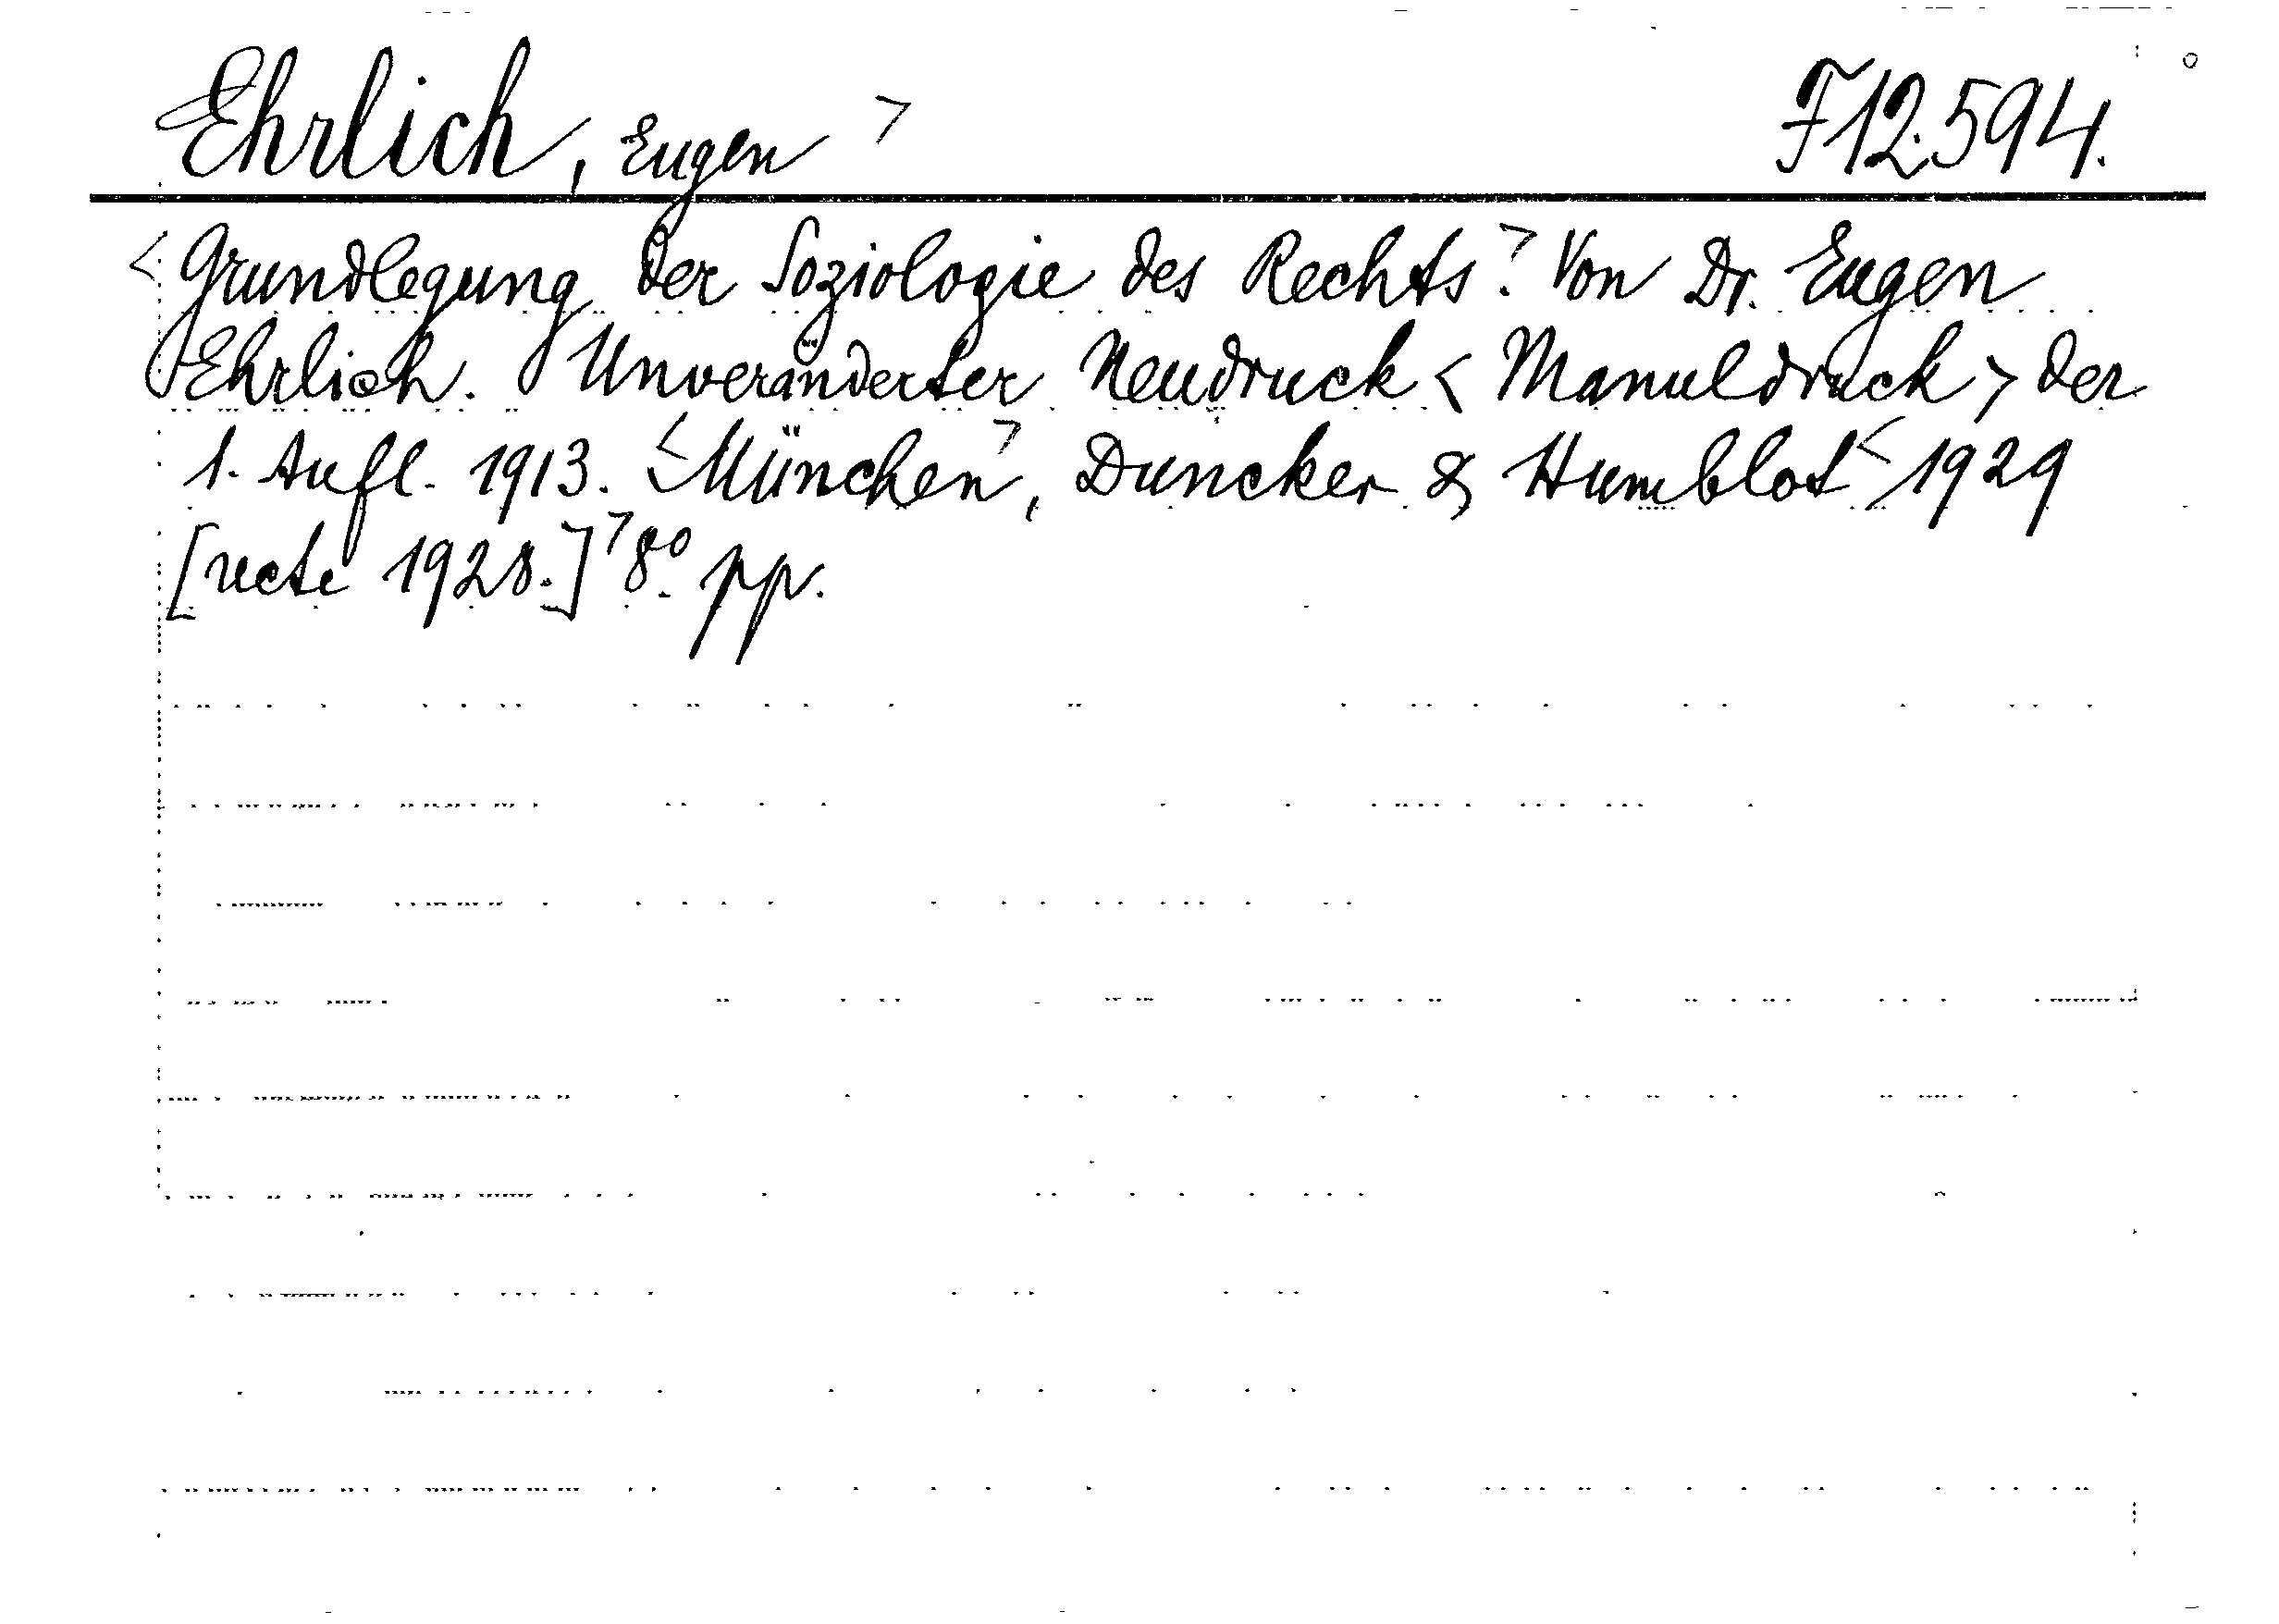 Ehrlich, Eugen > F12.594.
<Grundlegung der Soziologie des Rechts.> Von Dr. Eugen
Ehrlich. Unveränderter Neudruck < Manuldruck > der
1. Aufl. 1913. <München>, Duncker & Humblot < 1929
[recte 1928.]> 8° pp.